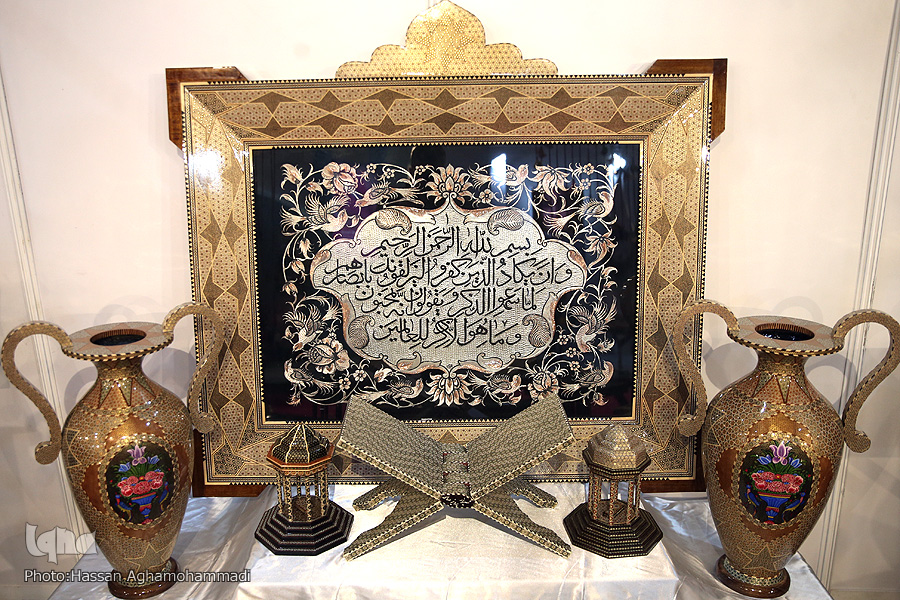 بسم الله الرحمن الرحیم
وان یکاد الذین کفروا لیزلقونک بابصارهم
لما سمعوا الذکر و یقولون انه لمجنون
و ما هو الا ذکر للعالمین
iqna
Photo:Hassan Aghamohammadi